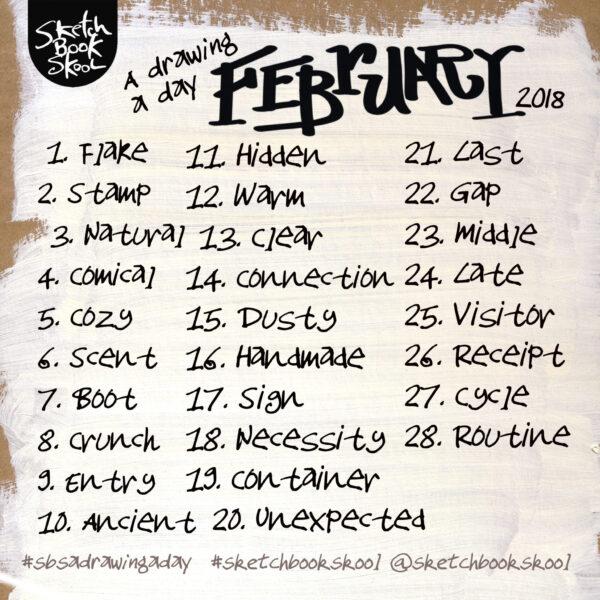 Sketch
Book
Skool
A drawing
a day
FEBRUARY
2018
1. Flake
2. Stamp
3. Natural
4. Comical
5. Cozy
6. Scent
7. Boot
8. Crunch
9. Entry
10. Ancient
11. Hidden
12. Warm
13. Clear
14. Connection
15. Dusty
16. Handmade
17. Sign
18. Necessity
19. Container
20. Unexpected
21. Last
22. Gap
23. Middle
24. Late
25. Visitor
26. Receipt
27. Cycle
28. Routine
#sbsadrawingaday #sketchbookskool @sketchbookskool